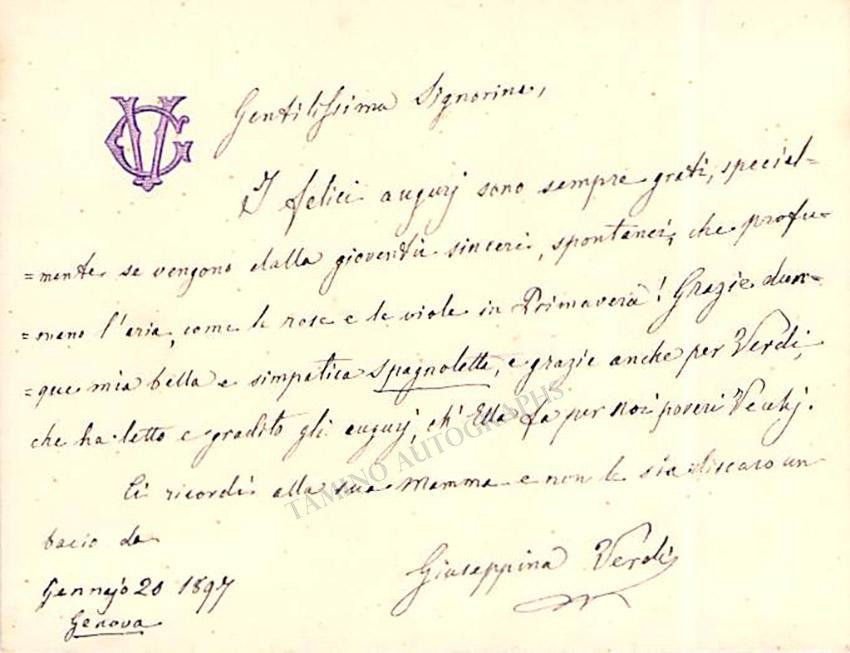 GV
Gentilissima Signorina,
I felici augurj sono sempre grati, special=
=mente se vengono dalla gioventù sinceri, spontanei, che profu=
=mano l'aria, come le rose e le viole in Primavera! Grazie dun=
=que mia bella e simpatica spagnoletta, e grazie anche per Verdi,
che ha letto e gradito gli augurj, ch'Ella fa per noi poveri Vecchj.
Ci ricordi alla sua Mamma e non le sia discaro un
bacio da
Giuseppina Verdi
Gennajo 20 1897
Genova
TAMINO AUTOGRAPHS